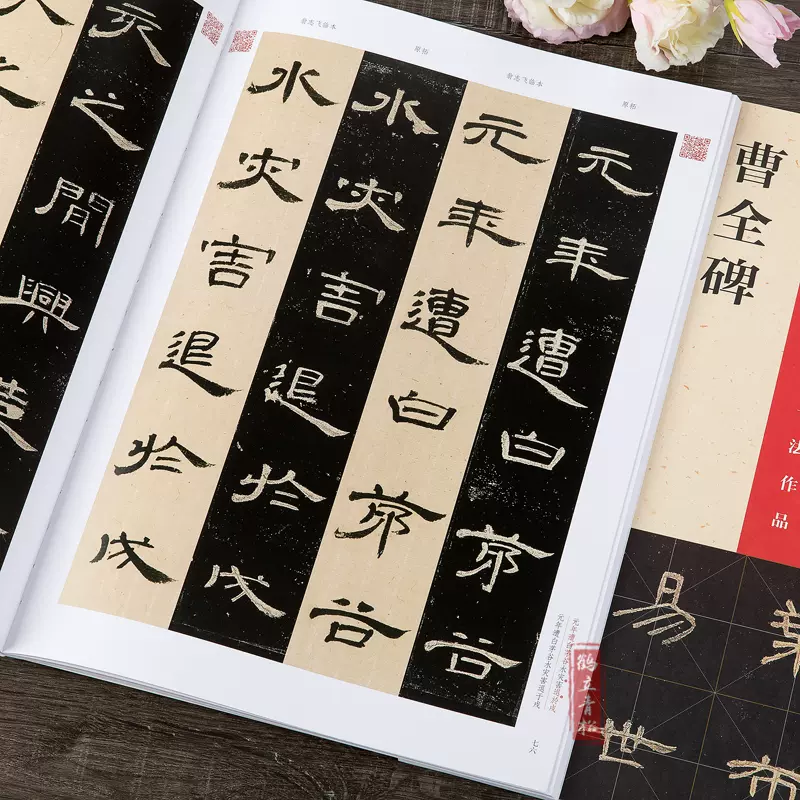 原拓
元年遭白茅谷
翁志飞临本
元年遭白茅谷
原拓
水灾害退於戌
翁志飞临本
水灾害退於戌
元年遭白茅谷水灾害退於戌
元年遭白茅谷水灾害退于戌
七六
亥之間興造
曹全碑
法作品
易世
布
鹤立青松